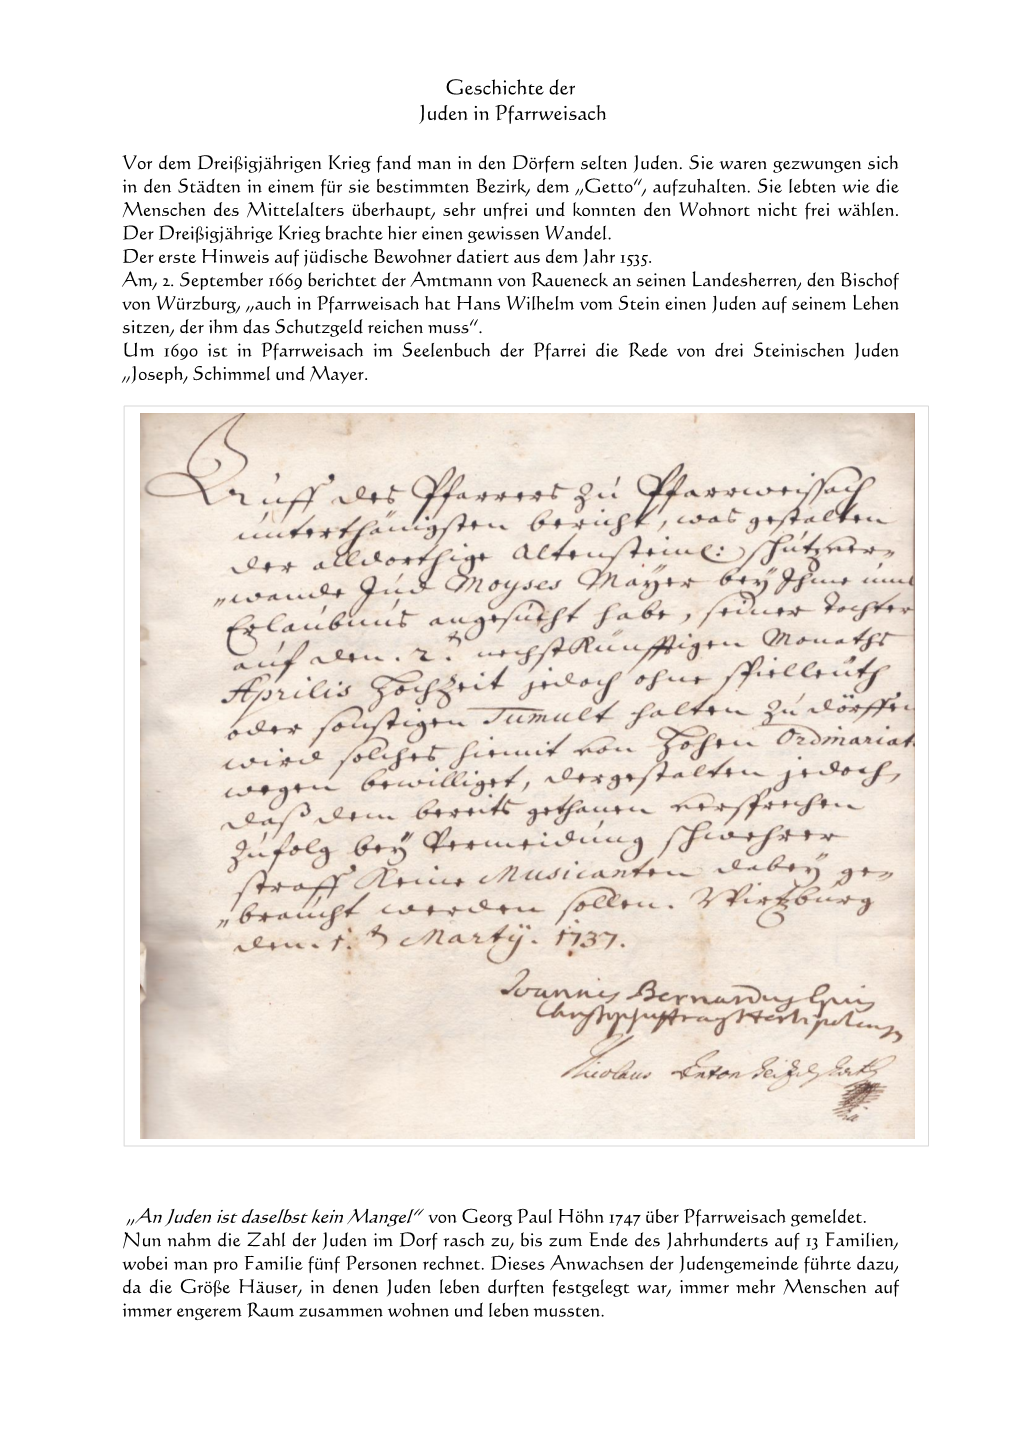 Geschichte der
Juden in Pfarrweisach
Vor dem Dreißigjährigen Krieg fand man in den Dörfern selten Juden. Sie waren gezwungen sich
in den Städten in einem für sie bestimmten Bezirk, dem „Getto“, aufzuhalten. Sie lebten wie die
Menschen des Mittelalters überhaupt, sehr unfrei und konnten den Wohnort nicht frei wählen.
Der Dreißigjährige Krieg brachte hier einen gewissen Wandel.
Der erste Hinweis auf jüdische Bewohner datiert aus dem Jahr 1535.
Am, 2. September 1669 berichtet der Amtmann von Raueneck an seinen Landesherren, den Bischof
von Würzburg, „auch in Pfarrweisach hat Hans Wilhelm vom Stein einen Juden auf seinem Lehen
sitzen, der ihm das Schutzgeld reichen muss“.
Um 1690 ist in Pfarrweisach im Seelenbuch der Pfarrei die Rede von drei Steinischen Juden
„Joseph, Schimmel und Mayer.
Auff des Pfarrers zu Pfarrweissach
unterthänigsten bericht, was gestalten
der alldorthige Altensteinl: schutzver-
wande Jud Moyses Mayer bey Ihme umb
Erlaubnus angesucht habe, seiner tochter
auf den 2. nechstkünfftigen Monaths
Aprilis Hochzeit jedoch ohne spielleuth
oder sonstigen Tumult halten zu dörffen
wird solches hiemit von Hohen Ordinariat
wegen bewilliget, dergestalten jedoch,
daß dem bereits gethanen versprechen
zufolg bey Vermeidung schwehrer
straff keine Musicanten dabey ge-
braucht werden sollen. Wirtzburg
den 1. Martÿ. 1737.
Joannes Bernardus
Nicolaus Anton
„An Juden ist daselbst kein Mangel“ von Georg Paul Höhn 1747 über Pfarrweisach gemeldet.
Nun nahm die Zahl der Juden im Dorf rasch zu, bis zum Ende des Jahrhunderts auf 13 Familien,
wobei man pro Familie fünf Personen rechnet. Dieses Anwachsen der Judengemeinde führte dazu,
da die Größe Häuser, in denen Juden leben durften festgelegt war, immer mehr Menschen auf
immer engerem Raum zusammen wohnen und leben mussten.